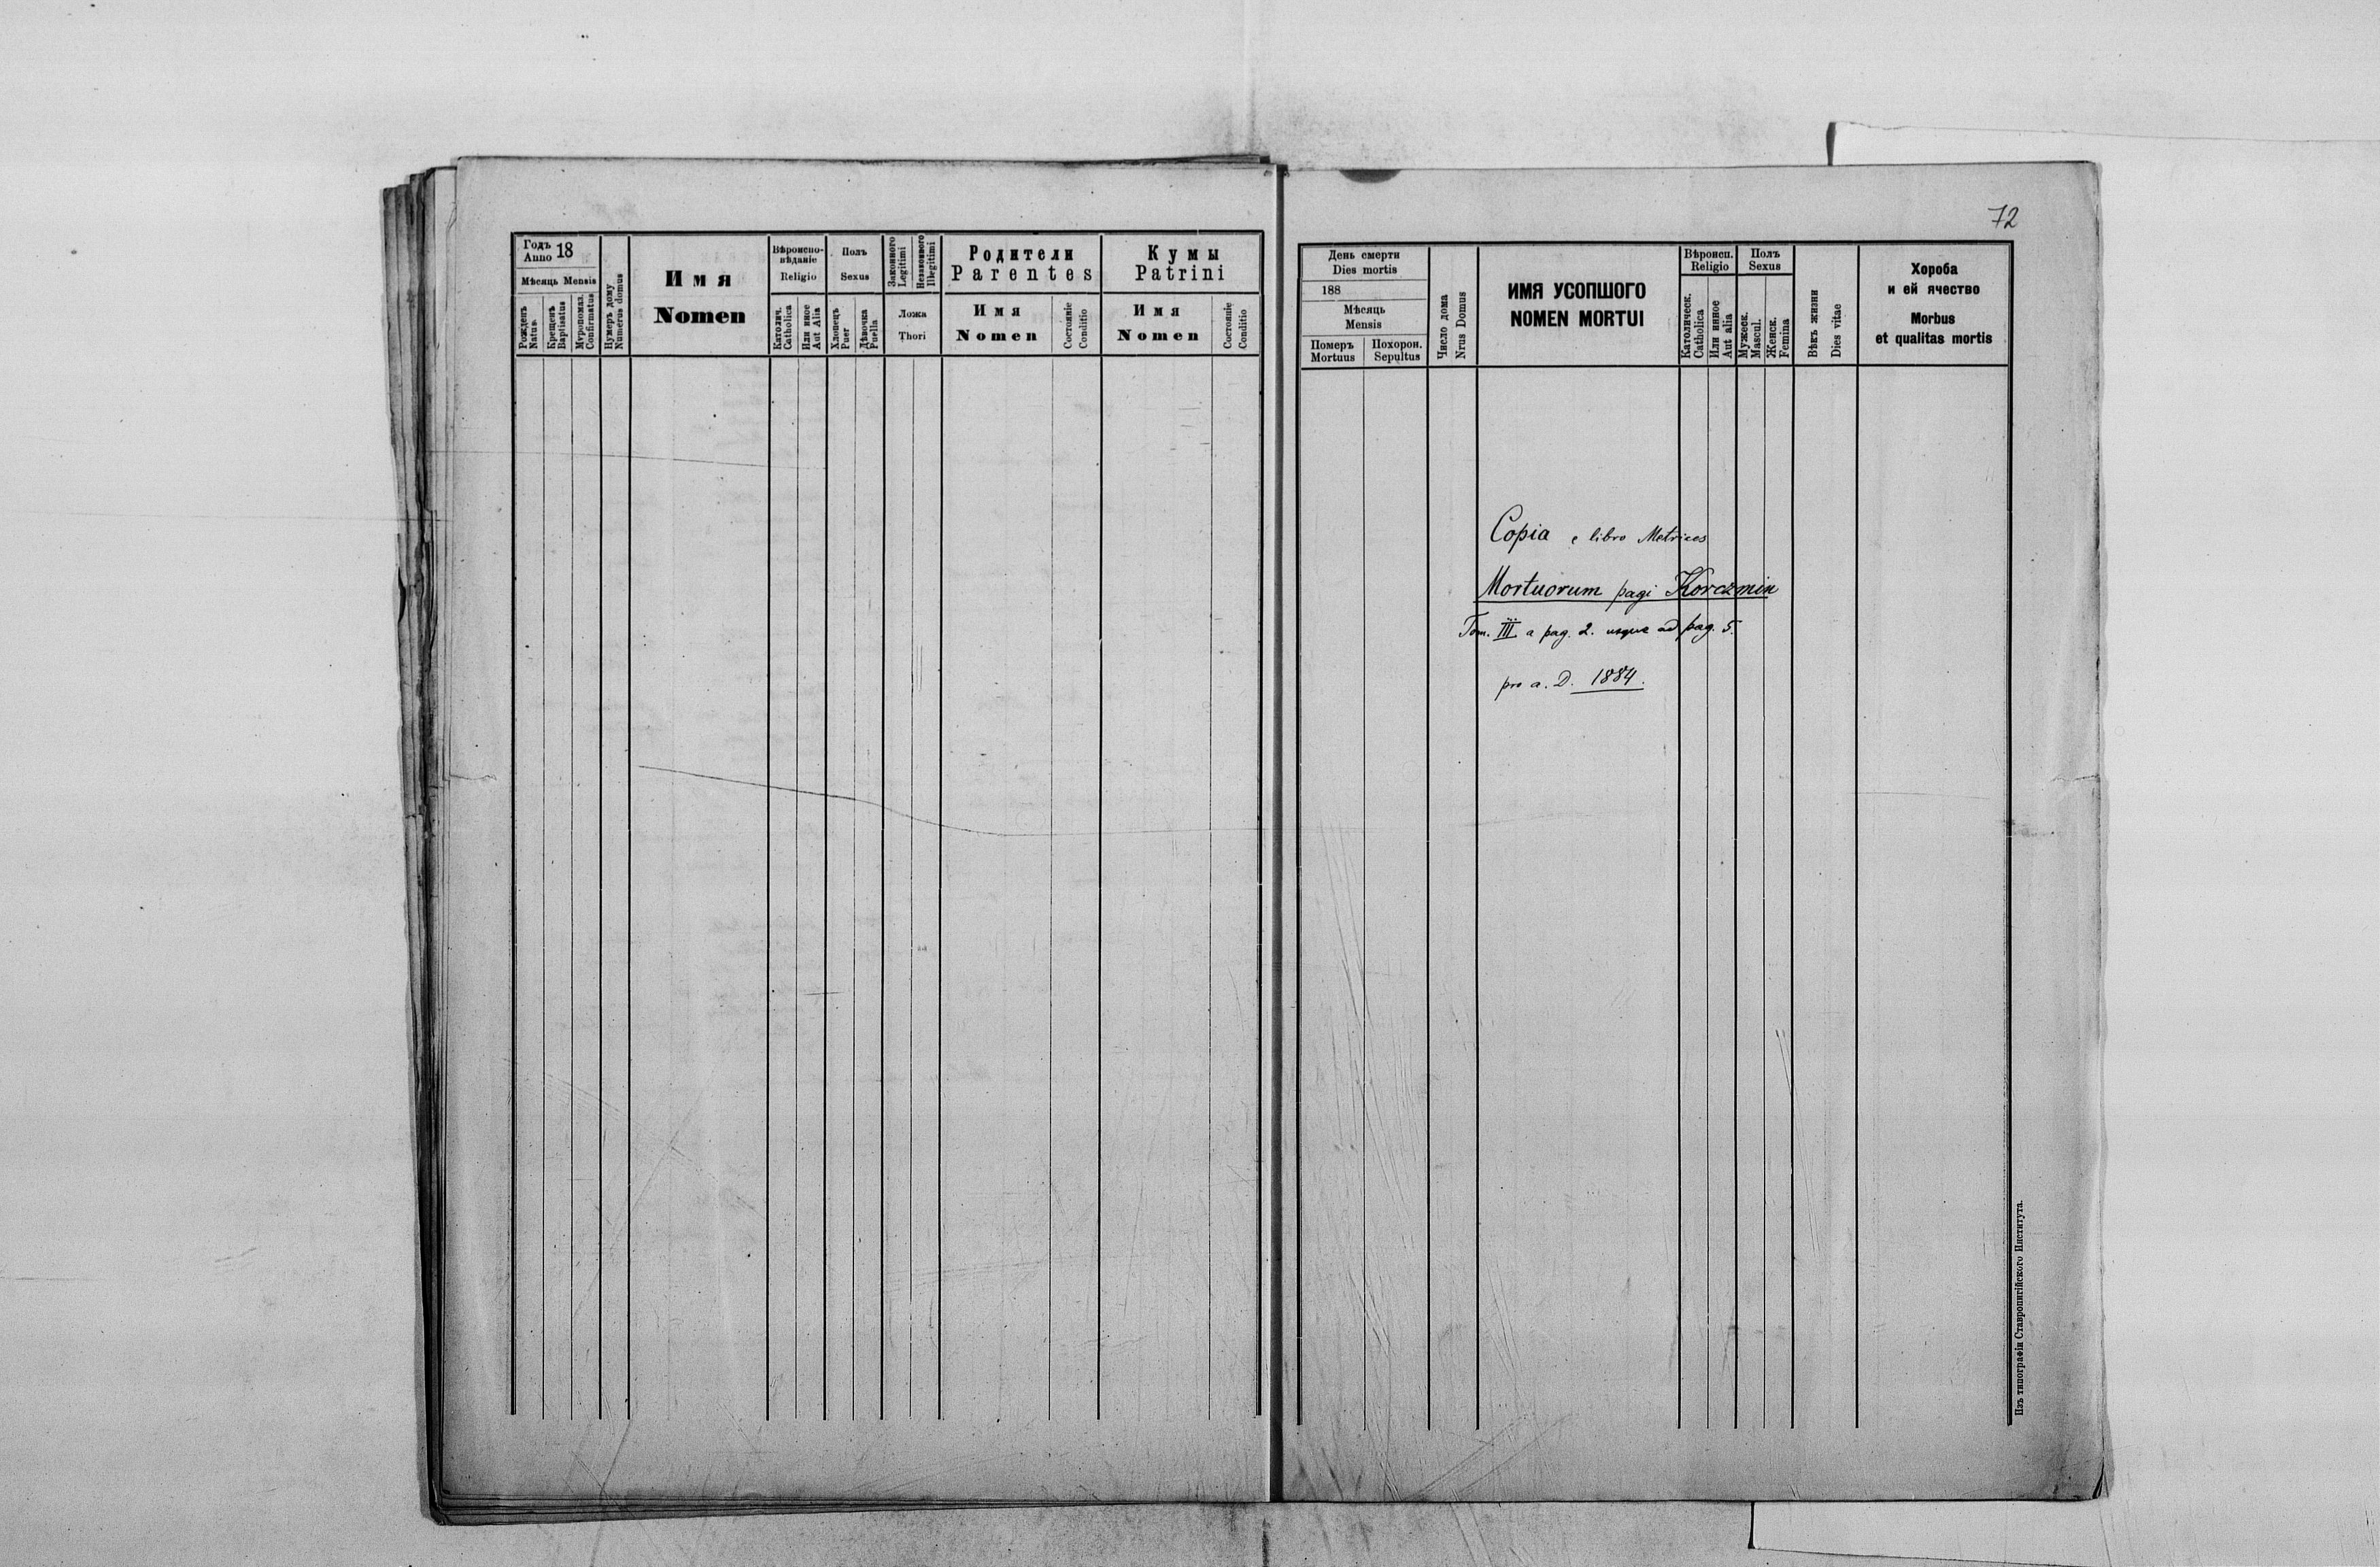 Годъ
Anno 18
Мѣсяць Mensis
Рожденъ
Natus
Крещенъ
Baptisatus
Мѵропомаз.
Confirmatus
Нумеръ дому
Numerus domus
Имя
Nomen
Вѣроиспо-
вѣданіе
Religio
Католич.
Catholica
Или иное
Aut Alia
Полъ
Sexus
Хлопецъ
Puer
Дѣвочка
Puella
Законного
Legitimi
Незаконного
Illegitimi
Ложа
Thori
Родители
Parentes
Имя
Nomen
Состояніе
Conditio
Кумы
Patrini
Имя
Nomen
Состояніе
Conditio
72
День смерти
Dies mortis
188
Мѣсяць
Mensis
Померъ
Mortuus
Похорон.
Sepultus
Число дома
Nrus Domus
ИМЯ УСОПШОГО
NOMEN MORTUI
Вѣроисп.
Religio
Католическ.
Catholica
Или инное
Aut alia
Полъ
Sexus
Мужеск.
Mascul.
Женск.
Femina
Вѣкъ жизни
Dies vitae
Хороба
и ей ячество
Morbus
et qualitas mortis
Copia e libro Metrices
Mortuorum pagi Korczmin
Tom. III a pag. 2. usque ad pag. 5.
pro a. D. 1884.
Изъ типографіи Ставропигійского Института.